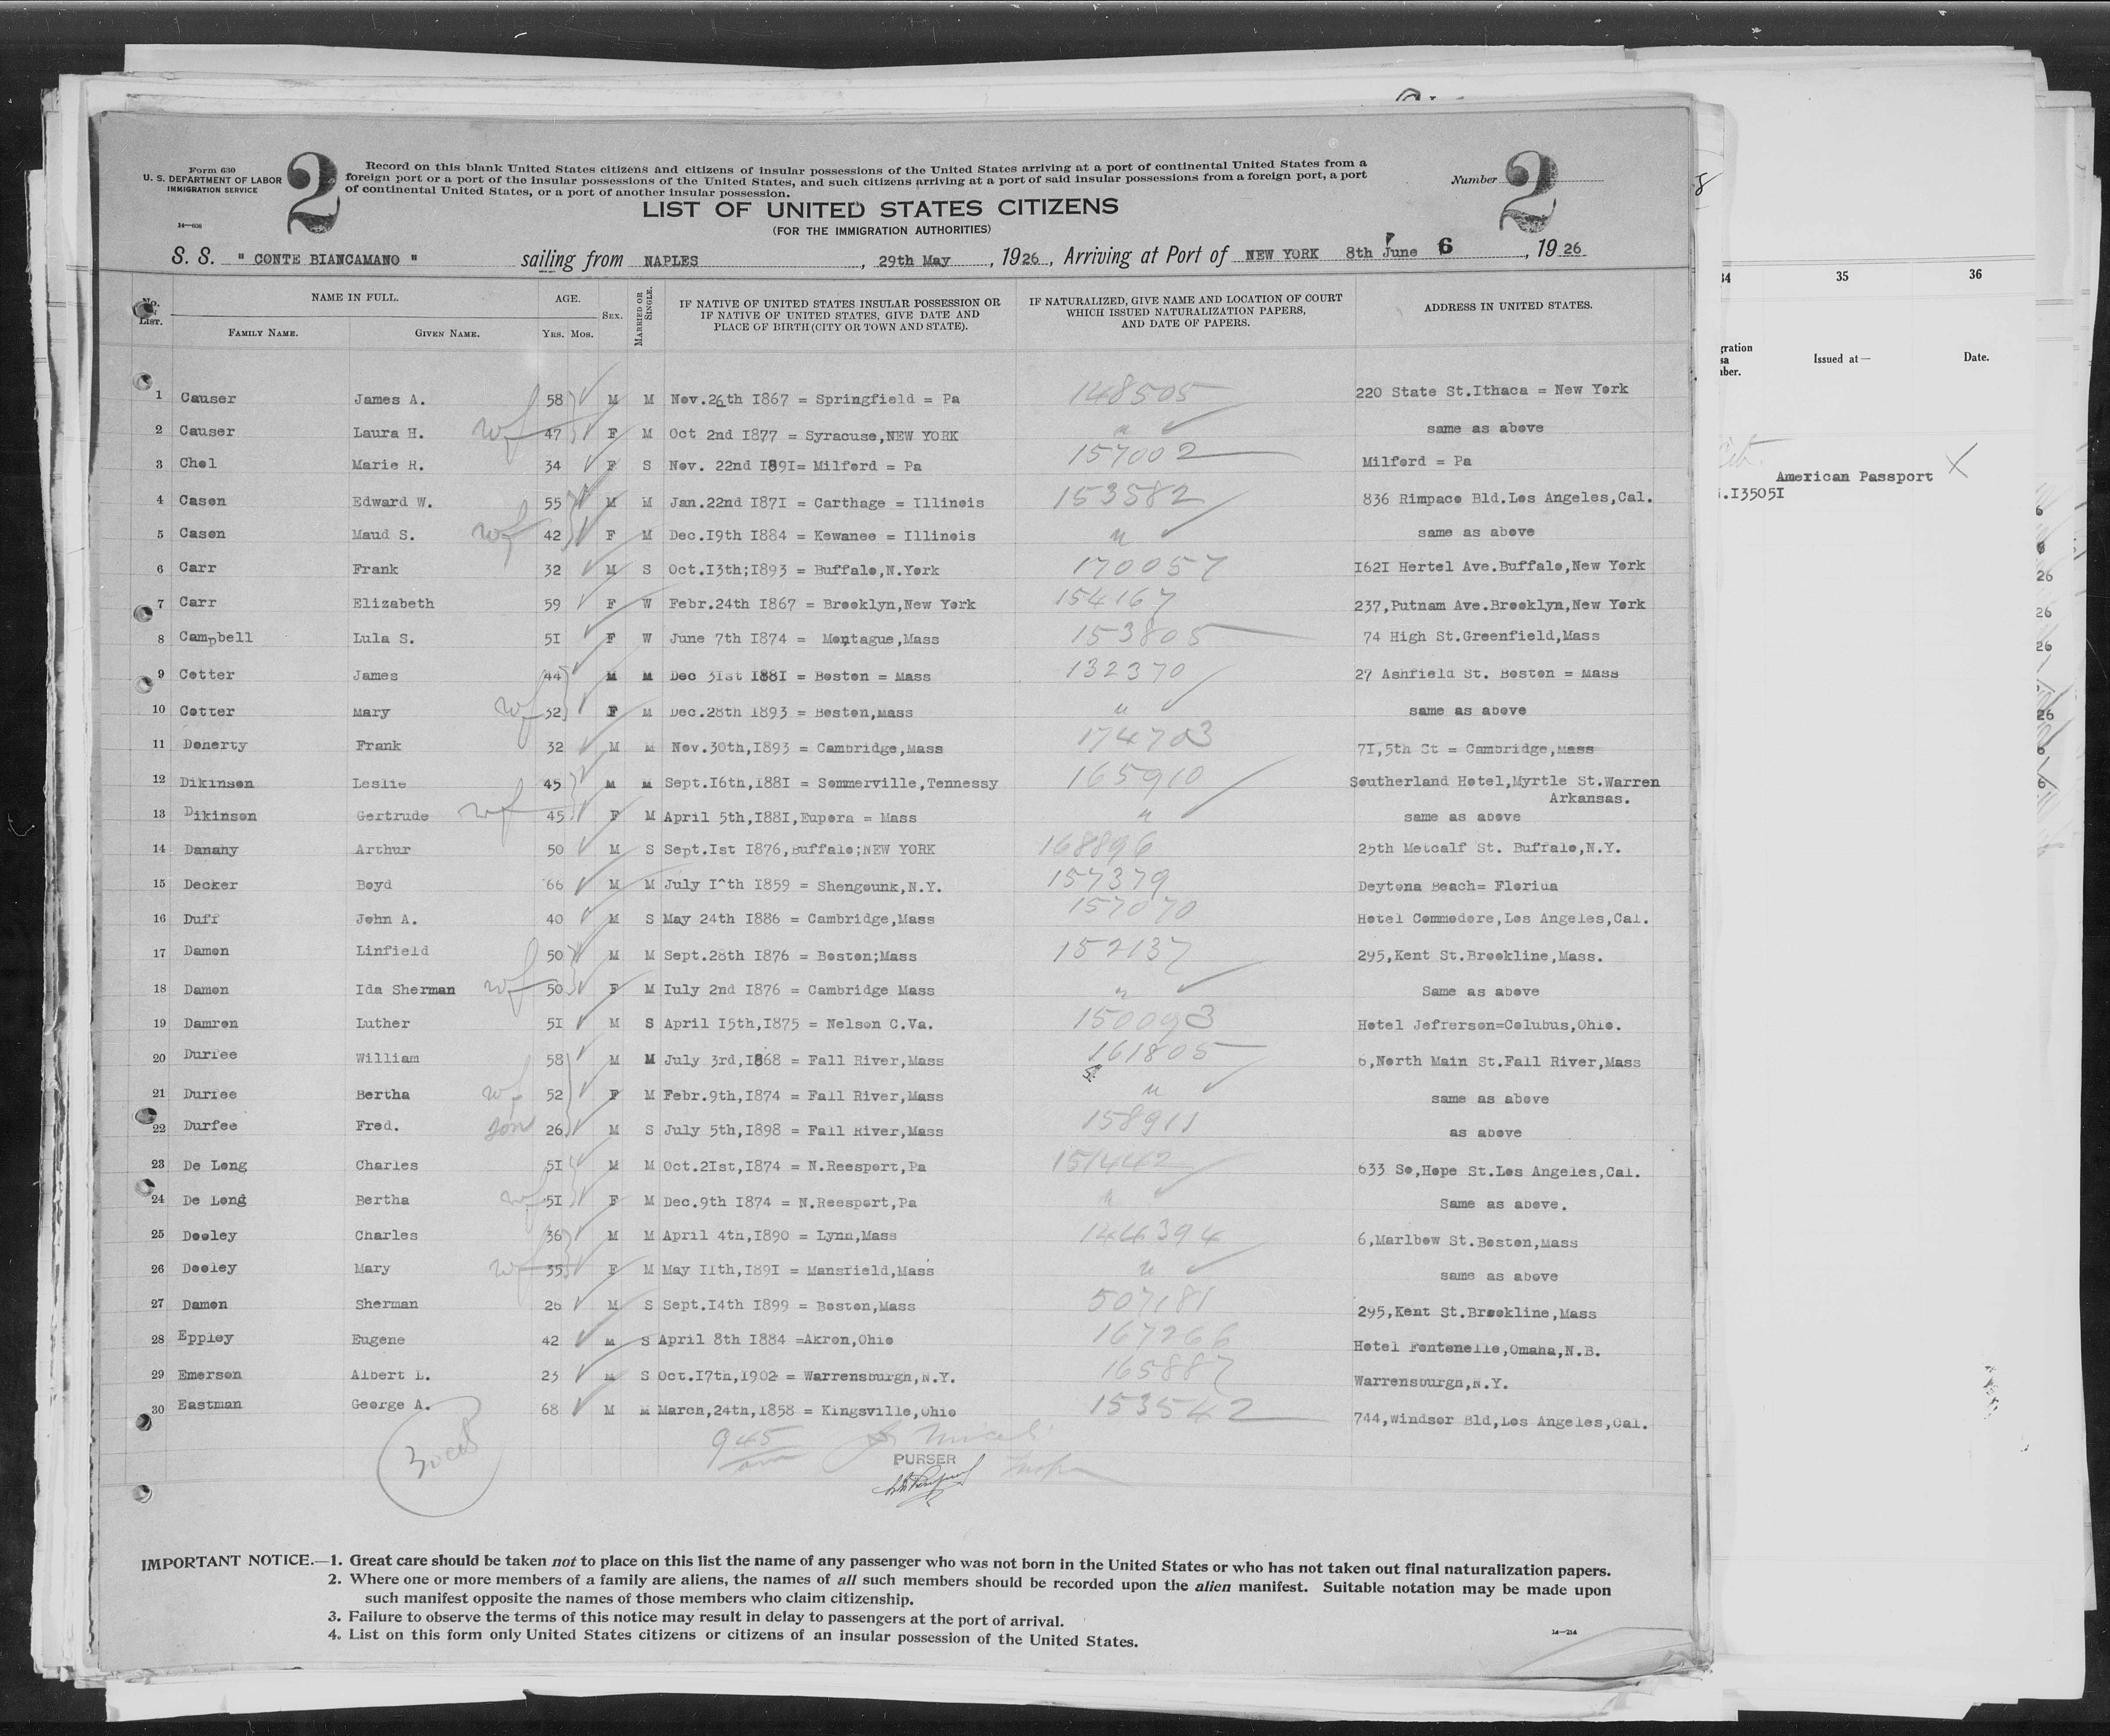 Form 630
U. S. DEPARTMENT OF LABOR
IMMIGRATION SERVICE
14—608
2
Record on this blank United States citizens and citizens of insular possessions of the United States arriving at a port of continental United States from a
foreign port or a port of the insular possessions of the United States, and such citizens arriving at a port of said insular possessions from a foreign port, a port
of continental United States, or a port of another insular possession.
Number 2
LIST OF UNITED STATES CITIZENS
(FOR THE IMMIGRATION AUTHORITIES)
S. S. " CONTE BIANCAMANO " sailing from NAPLES, 29th May, 1926, Arriving at Port of NEW YORK 8th June 6, 1926
No. LIST. NAME IN FULL. FAMILY NAME. GIVEN NAME. AGE. YRS. MOS. SEX. MARRIED OR SINGLE. IF NATIVE OF UNITED STATES INSULAR POSSESSION OR IF NATIVE OF UNITED STATES, GIVE DATE AND PLACE OF BIRTH (CITY OR TOWN AND STATE). IF NATURALIZED, GIVE NAME AND LOCATION OF COURT WHICH ISSUED NATURALIZATION PAPERS, AND DATE OF PAPERS. ADDRESS IN UNITED STATES.
1 Causer James A. 58 M M Nov.26th I867 = Springfield = Pa 148505 220 State St.Ithaca = New York
2 Causer Laura H. wf 47 F M Oct 2nd I877 = Syracuse,NEW YORK " same as above
3 Chol Marie R. 34 F S Nov. 22nd I89I= Milford = Pa 157002 Milford = Pa
4 Cason Edward W. 55 M M Jan.22nd I87I = Carthage = Illinois 153582 836 Rimpaco Bld.Los Angeles,Cal.
5 Cason Maud S. wf 42 F M Dec.I9th I884 = Kewanee = Illinois " same as above
6 Carr Frank 32 M S Oct.I3th;I893 = Buffalo,N.York 170057 I62I Hertel Ave.Buffalo,New York
7 Carr Elizabeth 59 F W Febr.24th I867 = Brooklyn,New York 154167 237,Putnam Ave.Brooklyn,New York
8 Campbell Lula S. 5I F W June 7th I874 = Montague,Mass 153805 74 High St.Greenfield,Mass
9 Cotter James 44 M M Dec 3Ist I88I = Boston = Mass 132370 27 Ashfield St. Boston = Mass
10 Cotter Mary wf 32 F M Dec.28th I893 = Boston,Mass " same as above
11 Doherty Frank 32 M M Nov.30th,I893 = Cambridge,Mass 174703 7I,5th St = Cambridge,Mass
12 Dikinson Leslie 45 M M Sept.I6th,I88I = Sommerville,Tennessy 165910 Southerland Hotel,Myrtle St.Warren
Arkansas.
13 Dikinson Gertrude wf 45 F M April 5th,I88I,Eupora = Mass " same as above
14 Danahy Arthur 50 M S Sept.Ist I876,Buffalo;NEW YORK 168896 25th Metcalf St. Buffalo,N.Y.
15 Decker Boyd 66 M M July I^th I859 = Shengounk,N.Y. 157379 Deytona Beach= Florida
16 Duff John A. 40 M S May 24th I886 = Cambridge,Mass 157070 Hotel Commodore,Los Angeles,Cal.
17 Damon Linfield 50 M M Sept.28th I876 = Boston;Mass 152137 295,Kent St.Brookline,Mass.
18 Damon Ida Sherman wf 50 F M Iuly 2nd I876 = Cambridge Mass " Same as above
19 Damron Luther 5I M S April I5th,I875 = Nelson C.Va. 150093 Hotel Jefferson=Colubus,Ohio.
20 Durfee William 58 M M July 3rd,I868 = Fall River,Mass 161805 6,North Main St.Fall River,Mass
21 Durfee Bertha wf 52 F M Febr.9th,I874 = Fall River,Mass " same as above
22 Durfee Fred. son 26 M S July 5th,I898 = Fall River,Mass 158911 as above
23 De Long Charles 5I M M Oct.2Ist,I874 = N.Reesport,Pa 151442 633 So,Hope St.Los Angeles,Cal.
24 De Long Bertha wf 5I F M Dec.9th I874 = N.Reesport,Pa " Same as above.
25 Dooley Charles 36 M M April 4th,I890 = Lynn,Mass 144394 6,Marlbow St.Boston,Mass
26 Dooley Mary wf 35 F M May IIth,I89I = Mansfield,Mass " same as above
27 Damon Sherman 26 M S Sept.I4th I899 = Boston,Mass 507181 295,Kent St.Brookline,Mass
28 Eppley Eugene 42 M S April 8th I884 =Akron,Ohio 167266 Hotel Fontenelle,Omaha,N.B.
29 Emerson Albert L. 23 M S Oct.I7th,I902 = Warrensburgh,N.Y. 165887 Warrensburgh,N.Y.
30 Eastman George A. 68 M M March,24th,I858 = Kingsville,Ohio 153542 744,Windsor Bld,Los Angeles,Cal.
945
PURSER
IMPORTANT NOTICE.—1. Great care should be taken not to place on this list the name of any passenger who was not born in the United States or who has not taken out final naturalization papers.
2. Where one or more members of a family are aliens, the names of all such members should be recorded upon the alien manifest. Suitable notation may be made upon
such manifest opposite the names of those members who claim citizenship.
3. Failure to observe the terms of this notice may result in delay to passengers at the port of arrival.
4. List on this form only United States citizens or citizens of an insular possession of the United States.
14—214
34 35 36
Issued at— Date.
American Passport
.I3505I
26
26
26
26